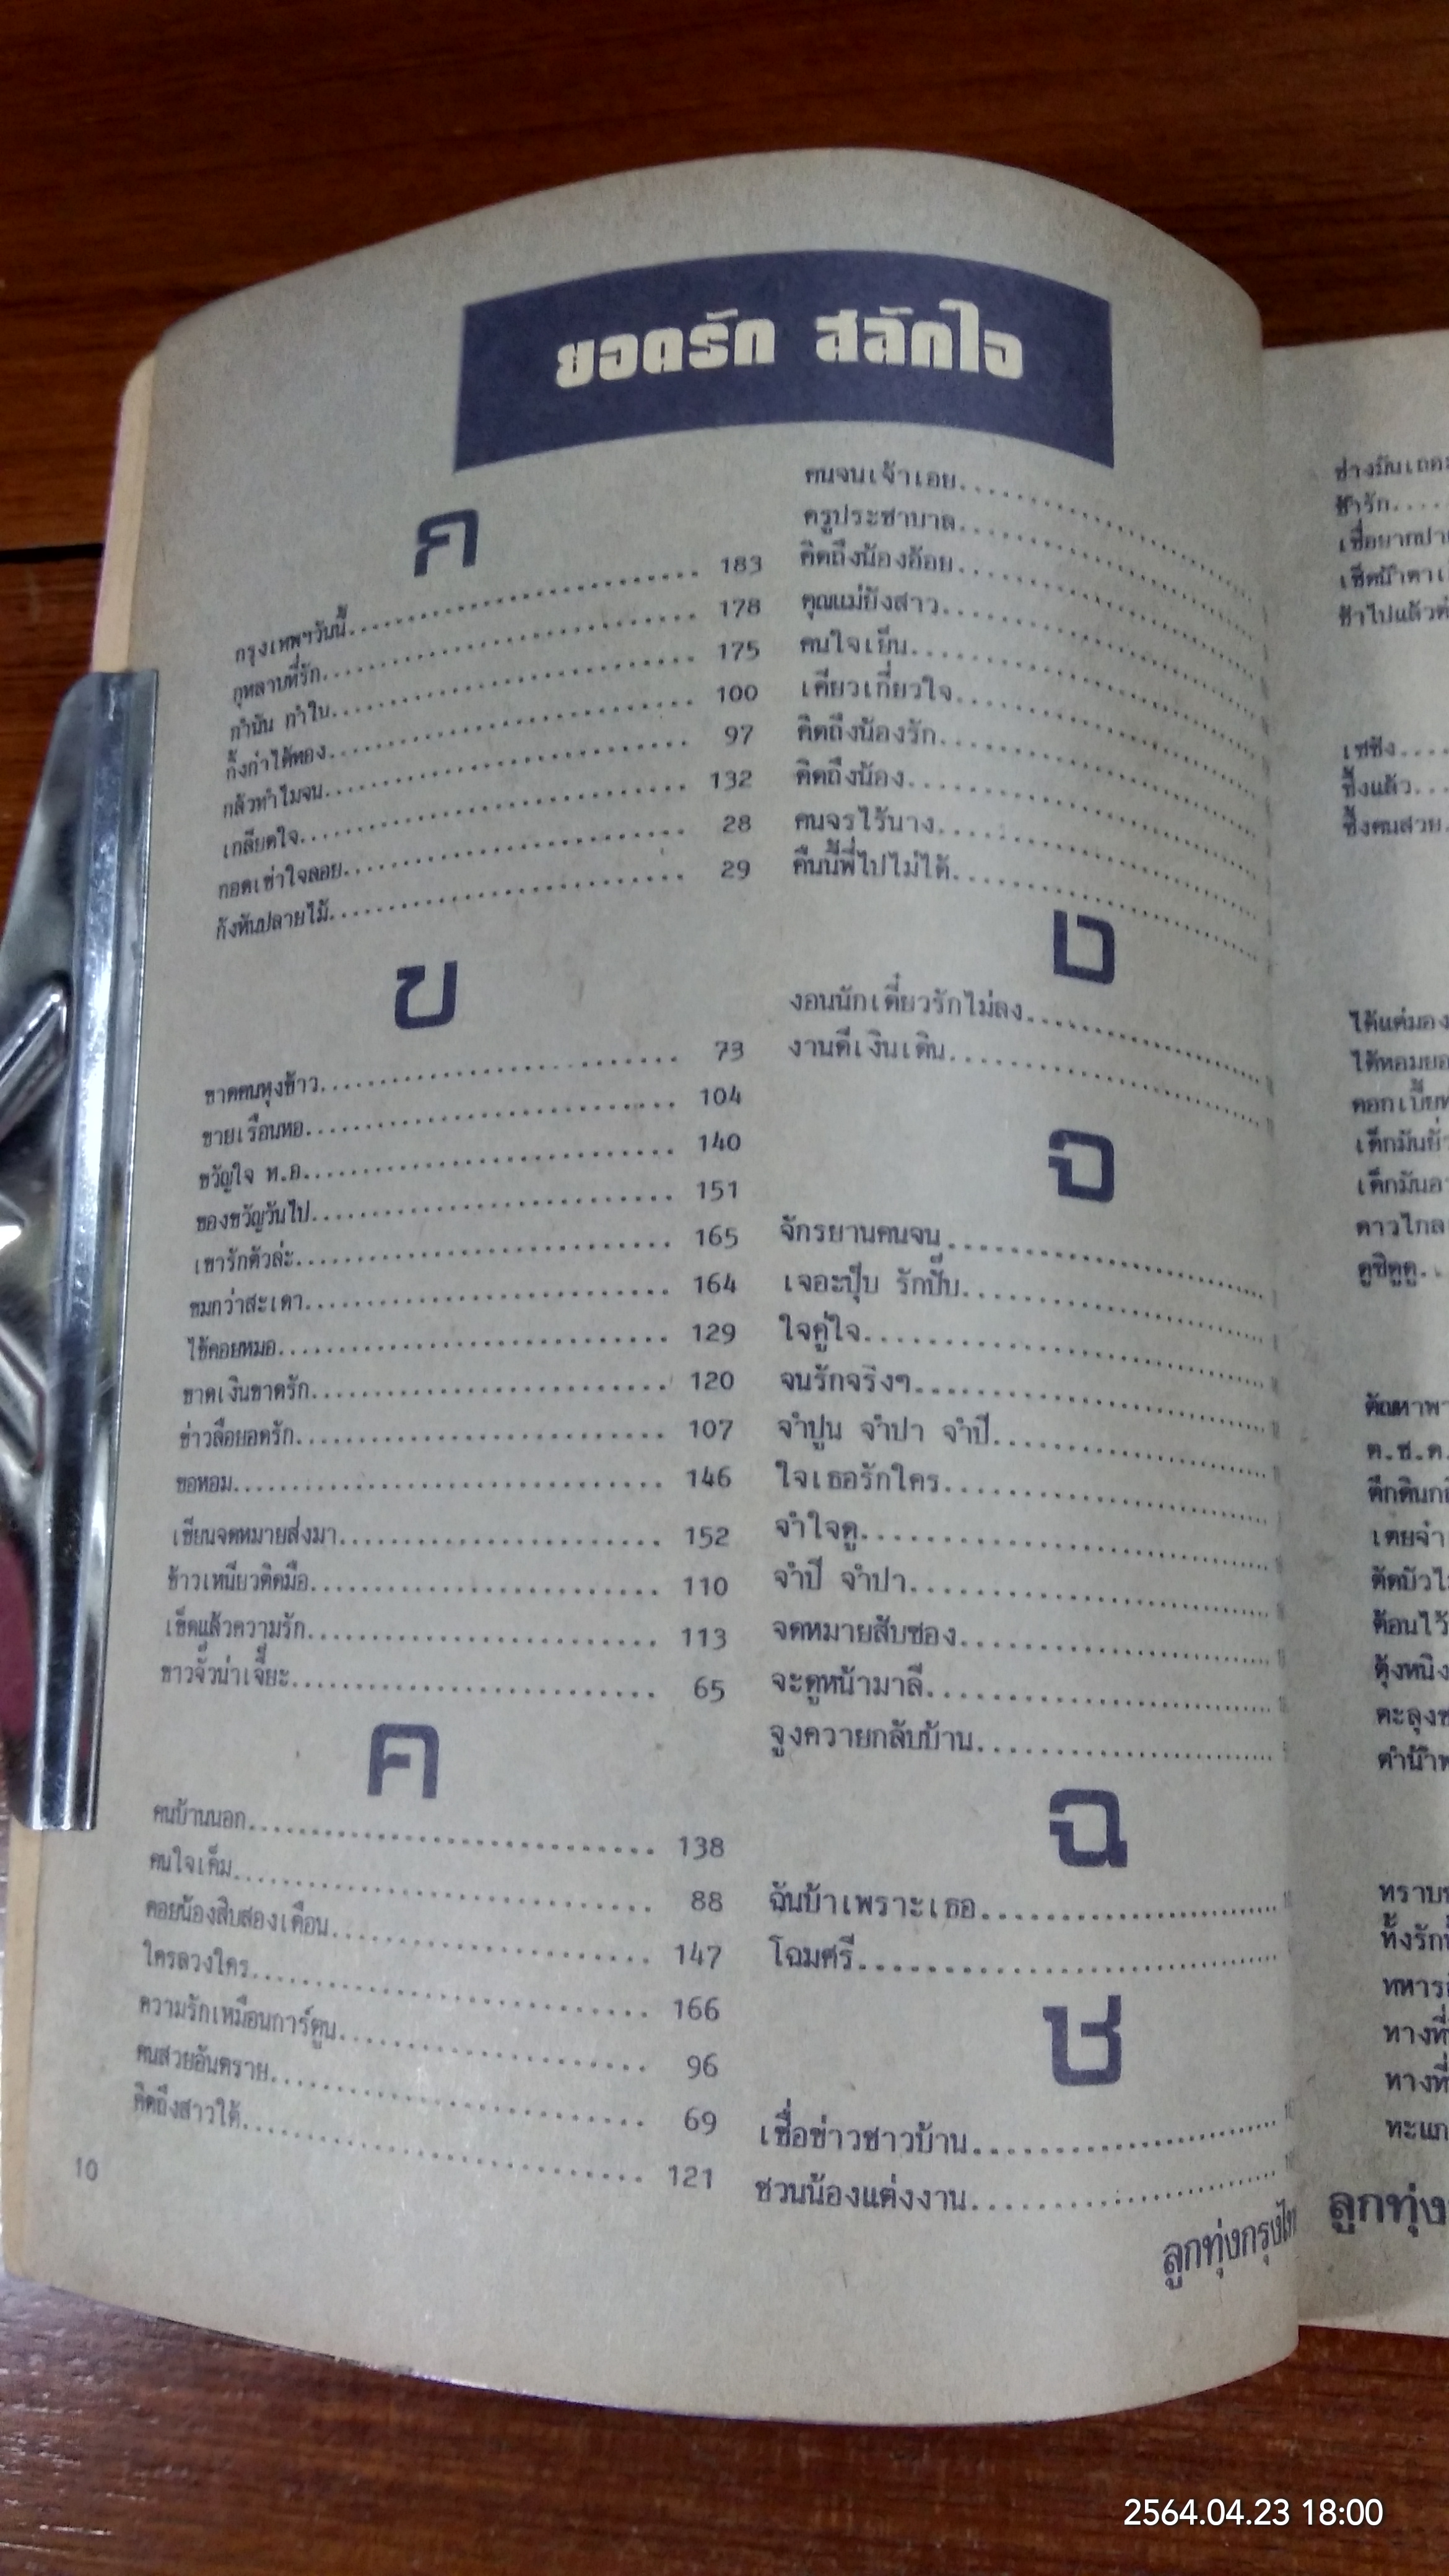 ยอดรัก สลักใจ
ก
กรุงเทพฯวันนี้ 183
กุหลาบที่รัก 178
กำนัน กำใน 175
กิ้งก่าได้ทอง 100
กลัวทำไมจน 97
เกลียดใจ 132
กอดเข่าใจลอย 28
กังหันปลายไม้ 29
ข
ขาดคนหุงข้าว 73
ขายเรือนหอ 104
ขวัญใจ ท.อ. 140
ของขวัญวันไป 151
เขารักตัวล่ะ 165
ขมกว่าสะเดา 164
ไข้คอยหมอ 129
ขาดเงินขาดรัก 120
ข่าวลือยอดรัก 107
ขอหอม 146
เขียนจดหมายส่งมา 152
ข้าวเหนียวติดมือ 110
เข็ดแล้วความรัก 113
ขาวจั๊วน่าเจี๊ยะ 65
ค
คนบ้านนอก 138
คนใจเค็ม 88
คอยน้องสิบสองเดือน 147
ใครลวงใคร 166
ความรักเหมือนการ์ตูน 96
คนสวยอันตราย 69
คิดถึงสาวใต้ 121
10
คนจนเจ้าเอย
ครูประชาบาล
คิดถึงน้องอ้อย
คุณแม่ยังสาว
คนใจเย็น
เคียวเกี่ยวใจ
คิดถึงน้องรัก
คิดถึงน้อง
คนจรไร้นาง
คืนนี้พี่ไปไม่ได้
ง
งอนนักเดี๋ยวรักไม่ลง
งานดีเงินเดิน
จ
จักรยานคนจน
เจอะปุ๊บ รักปั๊บ
ใจคู่ใจ
จนรักจริงๆ
จำปูน จำปา จำปี
ใจเธอรักใคร
จำใจดู
จำปี จำปา
จดหมายสับซอง
จะดูหน้ามาลี
จูงควายกลับบ้าน
ฉ
ฉันบ้าเพราะเธอ
โฉมศรี
ช
เชื่อข่าวชาวบ้าน
ชวนน้องแต่งงาน
ลูกทุ่งกรุงไทย
ช้ำรัก
ซึ้งแล้ว
ซึ้งคนสวย
ได้แต่มอง
ดาวไกล
ดูซิดูดู
ลูกทุ่ง
2564.04.23 18:00